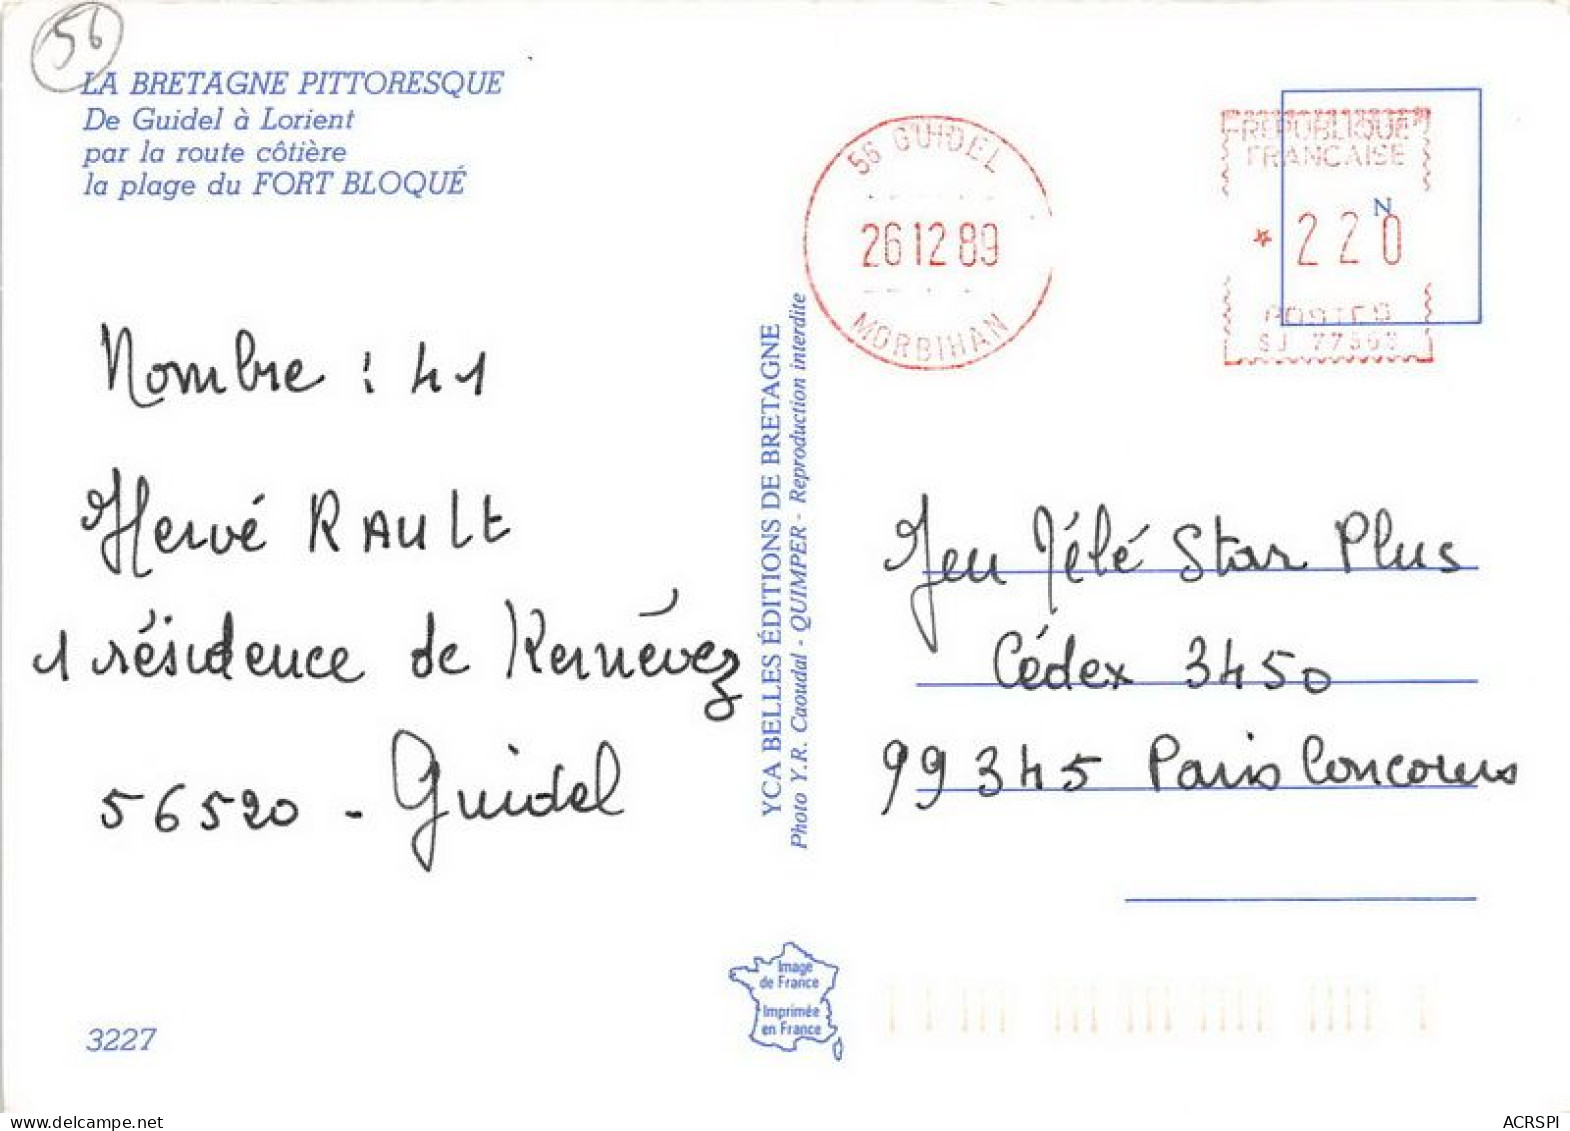 56
LA BRETAGNE PITTORESQUE
De Guidel à Lorient
par la route côtière
la plage du FORT BLOQUÉ
56 GUIDEL
26 12 89
MORBIHAN
REPUBLIQUE
FRANCAISE
N
* 220
POSTES
SJ
Nombre : 41
Hervé RAULT
1 résidence de Kernévez
56520 - Guidel
YCA BELLES ÉDITIONS DE BRETAGNE
Photo Y.R. Caoudal - QUIMPER - Reproduction interdite
Jeu Télé Star Plus
Cédex 3450
99345 Paris Concours
Image
de France
Imprimée
en France
3227
delcampe.net
ACRSPI